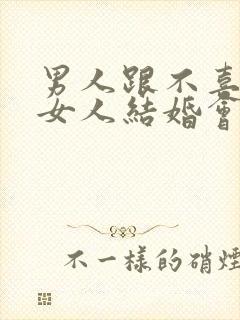 男人跟不喜
女人結婚會
不一樣的硝煙